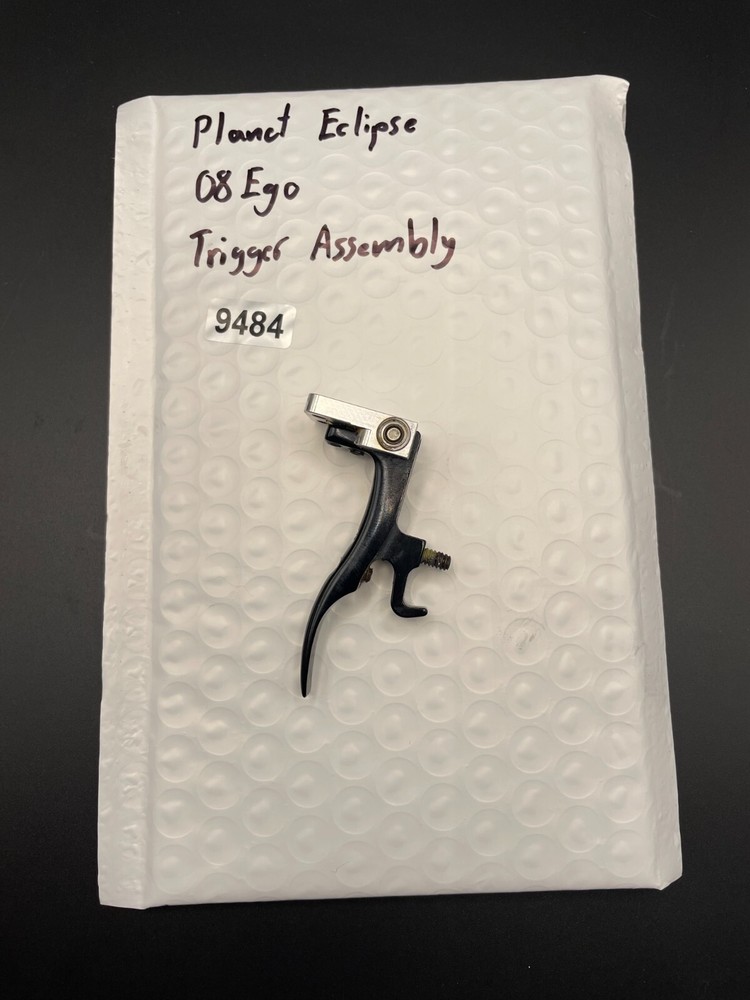 Planet Eclipse
08 Ego
Trigger Assembly
9484